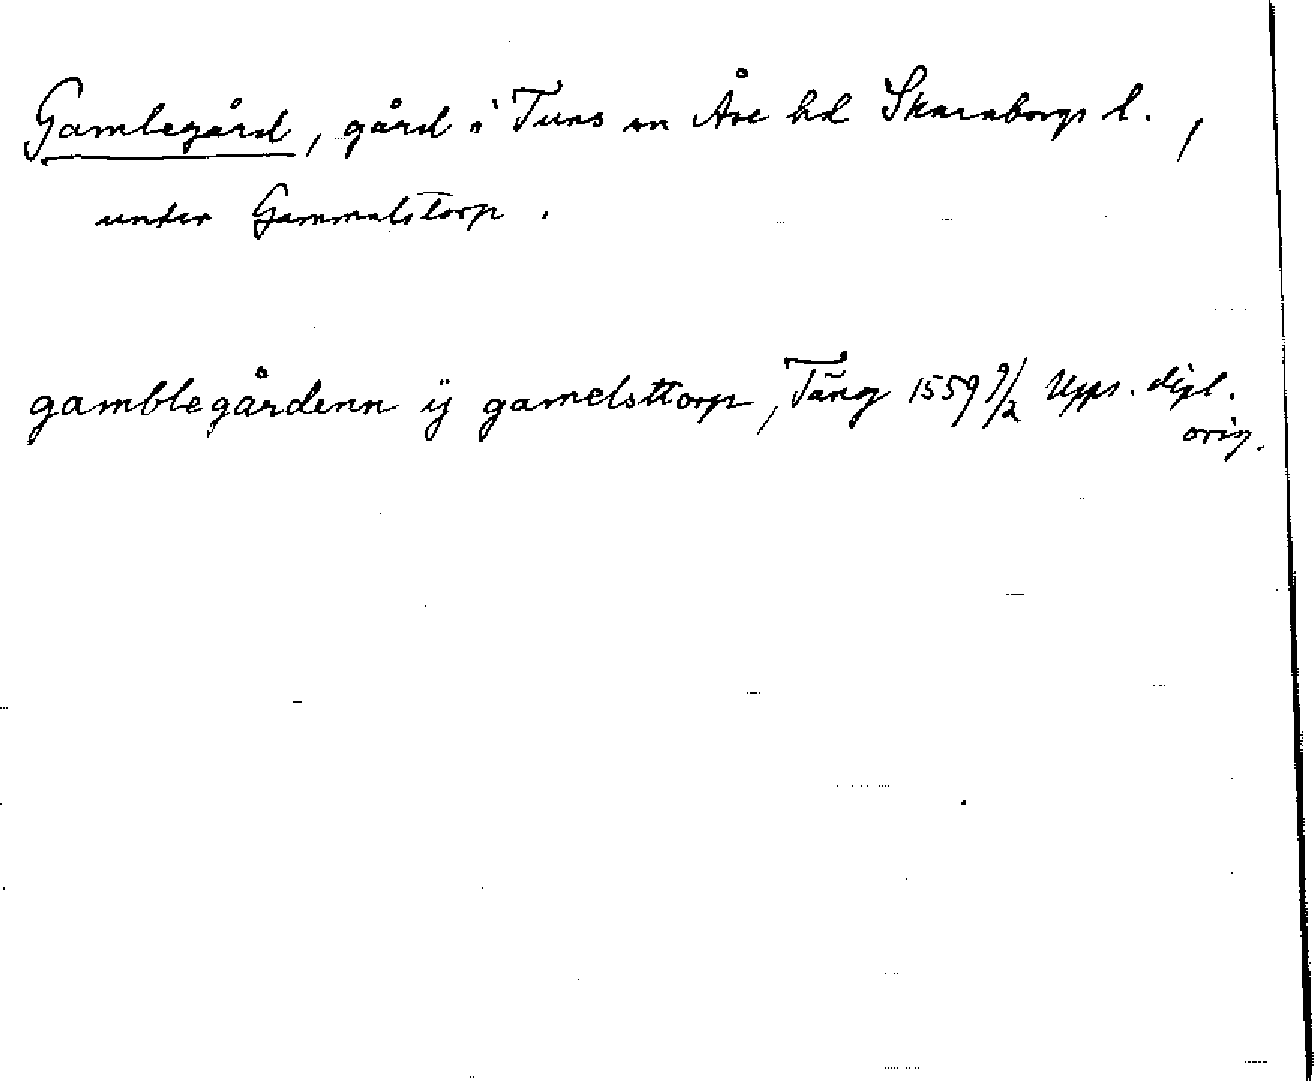 Gamlegård, gård i Tuns sn Åse hd Skaraborgs l.,
under Gammalstorp.
gamblegårdenn ij gamelsttorp, Täng 1559 9/2 Upps. dipl.
orig.